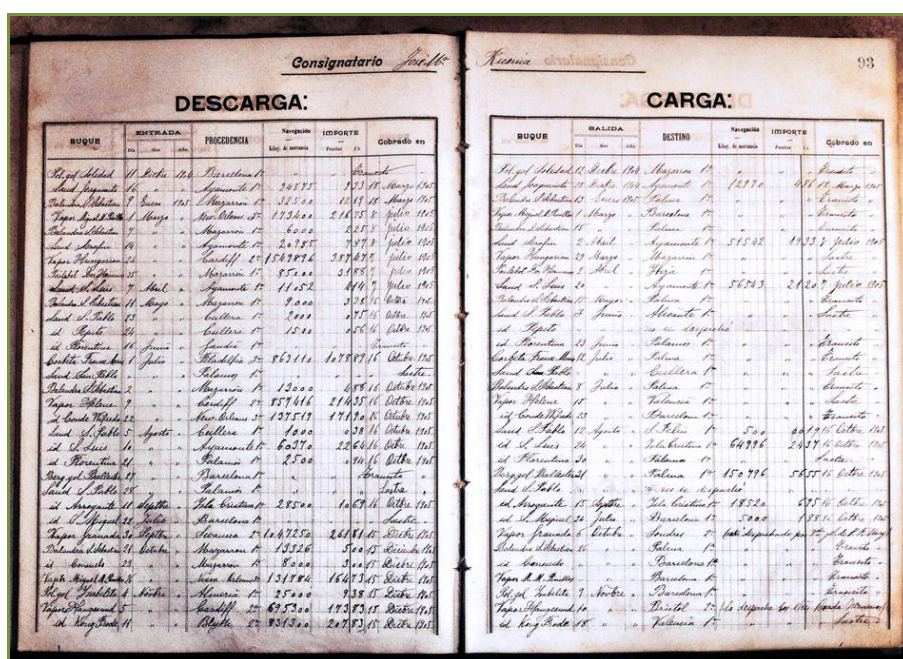 Consignatario José Mª
DESCARGA:
BUQUE ENTRADA PROCEDENCIA Navegación IMPORTE Cobrado en
Día Mes Año Kilog. de mercancía Pesetas Cs.
Pol. gol Soledad 11 Dicbre 1904 Barcelona 1ª " " Transito
Laud Joaquinito 16 " " Ayamonte 1ª 24875 933 18 Marzo 1905
Balandra S. Sebastian 9 Enero 1905 Mazarron 1ª 32500 1219 18 Marzo 1905
Vapor Miguel M. Pinillos 1 Marzo " New Orleans 3ª 173400 21675 8 Julio 1905
Balandra S. Sebastian 7 " " Mazarron 1ª 6000 225 8 Julio 1905
Laud Serafin 14 " " Ayamonte 1ª 20985 787 8 Julio 1905
Vapor Hungarian 24 " " Cardiff 2ª 1549896 38747 Julio 1905
25 " " Mazarron 1ª 85000 3188 7 Julio 1905
Laud S. Luis 7 Abril " Ayamonte 1ª 11052 414 7 Julio 1905
Balandra S. Sebastian 11 Mayo " Mazarron 1ª 9000 338 16 Octbre 1905
Laud S. Pablo 23 " " Cullera 1ª 2000 075 16 Octbre 1905
id Pepito 24 " " Cullera 1ª 1500 056 16 Octbre 1905
id Florentina 16 Junio " Gandia 1ª " " Transito
Corbeta 1 Julio " 3ª 863110 107889 16 Octubre 1905
Laud San Pablo " " Palamos 1ª " " Lastre
Balandra S. Sebastian 2 " " Mazarron 1ª 13000 488 16 Octubre 1905
Vapor Helene 9 " " Cardiff 2ª 857416 21435 16 Octbre 1905
id Conde Wifredo 22 " " New Orleans 3ª 137519 17190 16 Octubre 1905
Laud S. Pablo 5 Agosto " Cullera 1ª 1000 038 16 Octubre 1905
id S. Luis 10 " " Ayamonte 1ª 60370 2264 16 Octbre 1905
id Florentina 21 " " Palamos 1ª 2500 94 16 Octbre 1905
Berg. gol 27 " " Barcelona 1ª " " Transito
Laud S. Pablo 28 " " Palamos 1ª " " Lastre
id Arrogante 11 Septbre " Isla Cristina 1ª 28500 1069 16 Octbre 1905
id S. Miguel 22 Julio " Barcelona 1ª " " Lastre
Vapor Granada 30 Septbre " 2ª 1047250 26181 15 Dicbre 1905
Balandra S. Sebastian 21 Octubre " Mazarron 1ª 13326 500 15 Diciembre 1905
id Consuelo 23 " " Mazarron 1ª 8000 300 15 Dicbre 1905
Vapor Miguel M. Pinillos 26 " " New Orleans 3ª 131784 16473 15 Dicbre 1905
Pol. gol Isabelita 4 Novbre " Almeria 1ª 25000 938 15 Dicbre 1905
Vapor Haugesund 5 " " Cardiff 2ª 695300 17383 15 Dicbre 1905
id Kong Frode 11 " " Blyth 2ª 831300 20783 15 Dicbre 1905
93
CARGA:
BUQUE SALIDA DESTINO Navegación IMPORTE Cobrado en
Día Mes Año Kilog. de mercancía Pesetas Cs.
Pol. gol Soledad 12 Dicbre 1904 Mazarron 1ª " " Transito
Laud Joaquinito Dicbre 1904 Ayamonte 1ª 12970 486 18 Marzo 1905
Balandra S. Sebastian 13 Enero 1905 Palma 1ª " " Transito
Vapor Miguel M. Pinillos 1 Marzo " Barcelona 1ª " " Transito
Balandra S. Sebastian 15 " " Palma 1ª " " Transito
Laud Serafin 2 Abril " Ayamonte 1ª 51542 1933 8 Julio 1905
Vapor Hungarian 29 Marzo " Mazarron 1ª " " Lastre
2 Abril " 1ª " " Lastre
Laud S. Luis 20 " " Ayamonte 1ª 56543 2120 7 Julio 1905
Balandra S. Sebastian 15 Mayo " Palma 1ª " " Transito
Laud S. Pablo 3 Junio " Alicante 1ª " " Lastre
id Pepito " " no se despachó
id Florentina 23 Junio " Palamos 1ª " " Transito
Corbeta 12 Julio " Palma 1ª " " Transito
Laud San Pablo " " Cullera 1ª " " Lastre
Balandra S. Sebastian 8 Julio " Palma 1ª " " Transito
Vapor Helene 15 " " Valencia 1ª " " Lastre
id Conde Wifredo 23 " " Barcelona 1ª " " Transito
Laud S. Pablo 12 Agosto " S. Feliu 1ª 500 0019 16 Octbre 1905
id S. Luis 24 " " Isla Cristina 1ª 64996 2437 16 Octbre 1905
id Florentina 30 " " Palamos 1ª " " Lastre
Berg. gol 31 " " Palma 1ª 150796 5655 16 Octbre 1905
Laud S. Pablo " " no se despachó
id Arrogante 15 Septbre " Isla Cristina 1ª 18520 695 16 Octbre 1905
id S. Miguel 26 Julio " Barcelona 1ª 5000 188 16 Octbre 1905
Vapor Granada 6 Octubre " Londres 2ª despachado por
Balandra S. Sebastian 26 " " Palma 1ª " " Transito
id Consuelo " " Barcelona 1ª " " Transito
Vapor M. M. Pinillos " " Barcelona 1ª " " Transito
Pol. gol Isabelita 9 Novbre " Barcelona 1ª " " Transito
Vapor Haugesund 10 " " Bristol 2ª lo despacho
id Kong Frode 18 " " Valencia 1ª " " Lastre